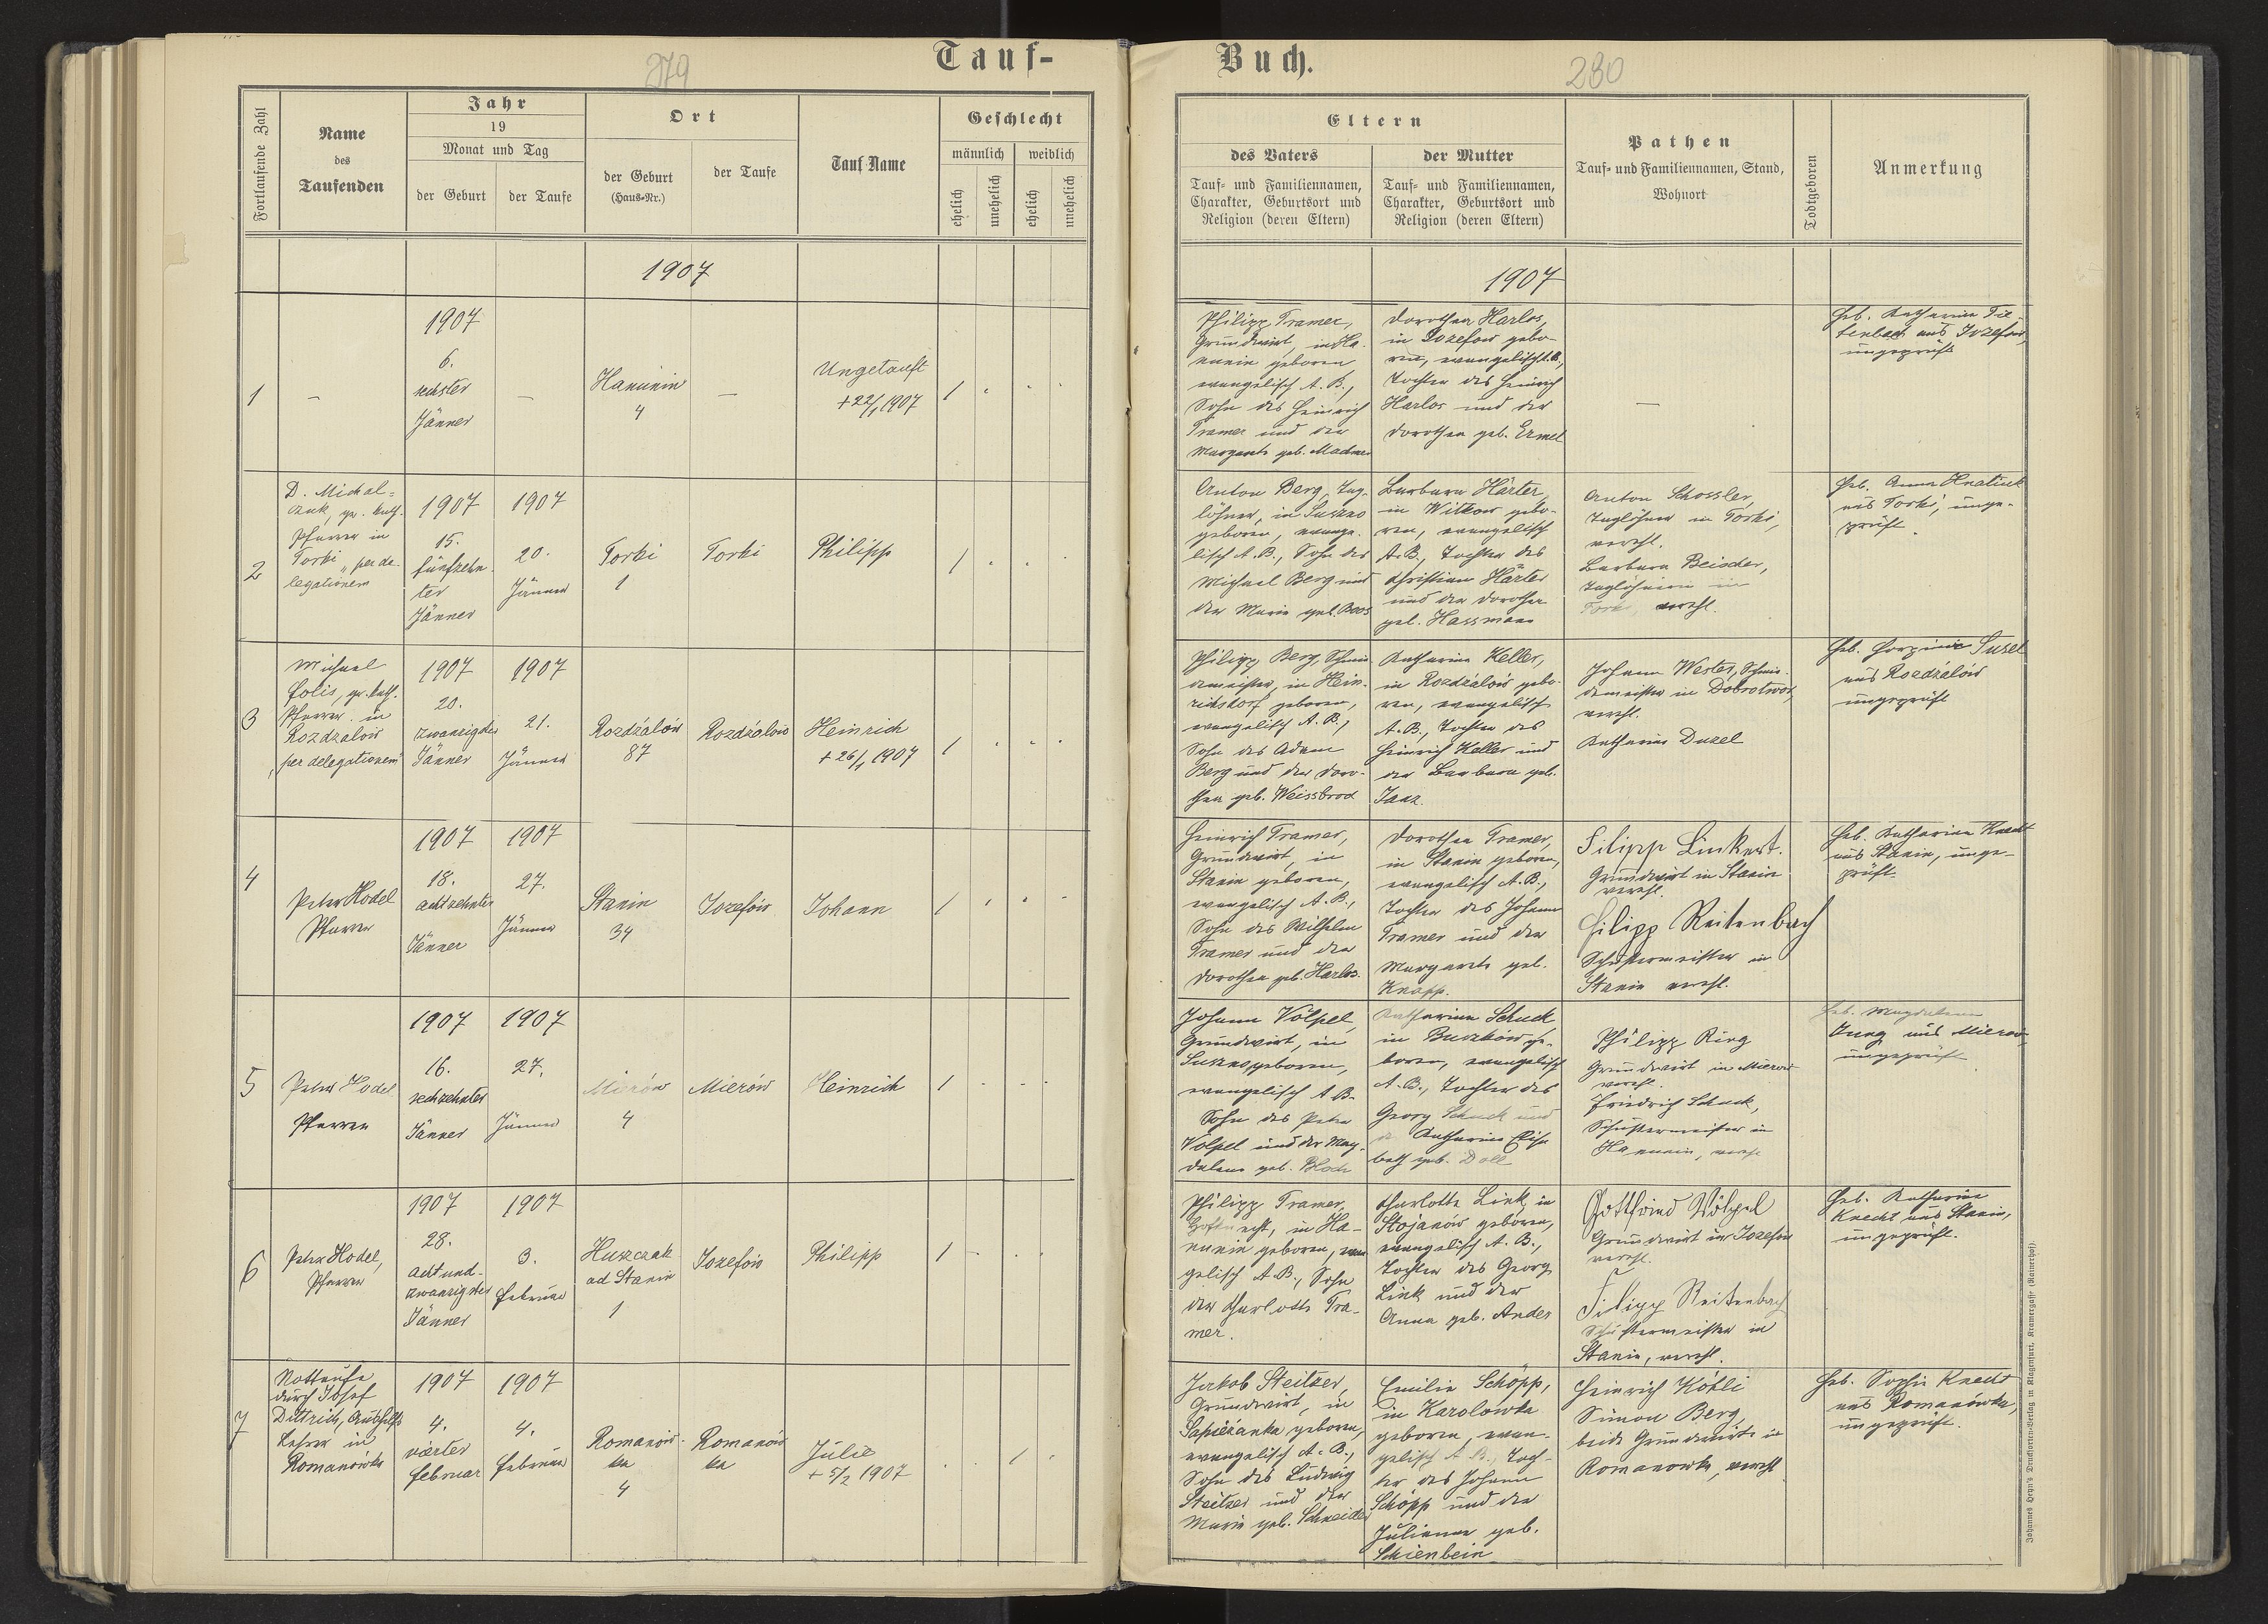 Tauf-
279
Fortlaufende Zahl
Name
des
Taufenden
Jahr
19
Monat und Tag
der Geburt
der Taufe
Ort
der Geburt
(Haus-Nr.)
der Taufe
Tauf-Name
Geschlecht
männlich
weiblich
ehelich
unehelich
ehelich
unehelich
1907
1
–
1907
6.
sechster
Jänner
–
Hanunin
4
–
Ungetauft
+ 22/1 1907
1
2
D. Michal=
czuk, gr. kath.
Pfarrer in
Torki „per de-
legationem
1907
15.
fünfzehn-
ter
Jänner
1907
20.
Jänner
Torki
1
Torki
Philipp
1
3
Michael
Pfarrer in
Rozdzalów
„per delegationem"
1907
20.
zwanzigster
Jänner
1907
21.
Jänner
Rozdzalów
87
Rozdzalów
Heinrich
+ 26/1 1907
1
4
Peter Hodel
Pfarrer
1907
18.
achtzehnter
Jänner
1907
27.
Jänner
Stanin
34
Jozefów
Johann
1
5
Peter Hodel
Pfarrer
1907
16.
sechzehnter
Jänner
1907
27.
Jänner
Mierów
4
Mierów
Heinrich
1
6
Peter Hodel,
Pfarrer
1907
28.
achtund-
zwanzigster
Jänner
1907
3.
Februar
Huszczak
ad Stanin
1
Jozefów
Philipp
1
7
Nottaufe
durch Josef
Dittrich, Aushilfs
Lehrer in
Romanówka
1907
4.
vierter
Februar
1907
4.
Februar
Romanów-
ka
4
Romanów
ka
Julie
+ 5/2 1907
1
Buch.
280
Eltern
des Vaters
Tauf- und Familiennamen,
Charakter, Geburtsort und
Religion (deren Eltern)
der Mutter
Tauf- und Familiennamen,
Charakter, Geburtsort und
Religion (deren Eltern)
Pathen
Tauf- und Familiennamen, Stand,
Wohnort
Todtgeboren
Anmerkung
1907
Philipp Tramer,
Grundwirt, in Ha-
nunin geboren
evangelisch A. B.,
Sohn des Heinrich
Tramer und der
Margarete geb.
Dorothea Harlos,
in Jozefow gebo-
ren, evangelisch A.B.,
Tochter des Heinrich
Harlos und der
Dorothea geb. Ermel
–
Heb. Katharina
aus Jozefow,
ungeprüft
Anton Berg, Tag-
löhner, in Suszno
geboren, evange-
lisch A. B., Sohn des
Michael Berg und
der Maria geb. Boos
Barbara Härter,
in Witkow gebo-
ren, evangelisch
A. B., Tochter des
Christian Härter
und der Dorothea
geb. Hassmann
Anton Schossler,
Taglöhner in Torki,
verehl.
Barbara Beischer,
Taglöhnerin in
Torki, verehl.
Heb. Anna Hnatiuk
aus Torki, unge-
prüft
Philipp Berg, Schmie-
demeister, in Hein-
richsdorf geboren,
evangelisch A. B.,
Sohn des Adam
Berg und der Doro-
thea geb. Weissbrod
Katharina Keller,
in Rozdzalów gebo-
ren, evangelisch
A. B., Tochter des
Heinrich Keller und
der Barbara geb.
Johann Wester, Schmie-
demeister in Dobrotwor,
verehl.
Katharina Duzel
aus Rozdzalów
ungeprüft
Heinrich Tramer,
Grundwirt, in
Stanin geboren,
evangelisch A. B.,
Sohn des Wilhelm
Tramer und der
Dorothea geb. Harlos.
Dorothea Tramer,
in Stanin geboren,
evangelisch A. B.,
Tochter des Johann
Tramer und der
Margarete geb.
Knapp.
Filipp Linkert.
Grundwirt in Stanin
verehl.
Filipp Reitenbach
Schustermeister in
Stanin verehl.
Heb. Katharina Knecht
aus Stanin, unge-
prüft.
Johann Völpel,
Grundwirt, in
Suszno geboren,
evangelisch A. B.
Sohn des Peter
Völpel und der Mag-
dalena geb. Bloch
Katharina Schuck
in Buczków ge-
boren, evangelisch
A. B., Tochter des
Georg Schuck und
Katharina Elisa
beth geb. Doll
Philipp Ring
Grundwirt in Mierow
verehl.
Friedrich Schuck,
Schustermeister in
Hanunin, verehl.
Heb. Magdalena
Jung aus Mierow,
ungeprüft
Philipp Tramer,
in Ha-
nunin geboren, evan
gelisch A. B., Sohn
der Charlotte Tra-
mer.
Charlotte Link, in
Stojanów geboren,
evangelisch A. B.,
Tochter des Georg
Link und der
Anna geb. Andes
Gottfried Völpel
Grundwirt in Jozefow
verehl.
Filipp Reitenbach
Schustermeister in
Stanin, verehl.
Heb. Katharina
Knecht aus Stanin,
ungeprüft.
Jakob Steitzer,
Grundwirt, in
Sapiezanka geboren,
evangelisch A. B.,
Sohn des Ludwig
Steitzer und der
Maria geb. Schneider
Emilie Schöpp,
in Karolowka
geboren, evan-
gelisch A. B., Toch-
ter des Johann
Schöpp und der
Juliana geb.
Schienbein
Heinrich Köhli
Simon Berg,
beide Grundwirte in
Romanowka, verehl.
Heb. Sophie Knecht
aus Romanówka,
ungeprüft.
Johannes Heyn's Drucksorten-Verlag in Klagenfurt, Kramergasse (Rainerhof).